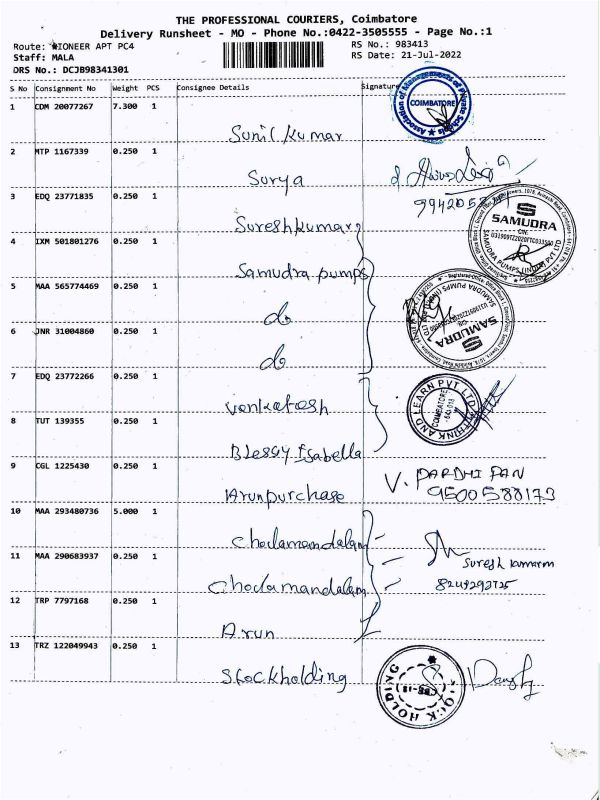 THE PROFESSIONAL COURIERS, Coimbatore
Delivery Runsheet - MO - Phone No.:0422-3505555 - Page No.:1
Route: PIONEER APT PC4 RS No.: 983413
Staff: MALA RS Date: 21-Jul-2022
DRS No.: DCJB98341301
S No Consignment No Weight PCS Consignee Details Signature
1 CDM 20077267 7.300 1
Association of Managements of Private Schools
COIMBATORE
Sunil kumar
2 MTP 1167339 0.250 1
Surya
3 EDQ 23771835 0.250 1
Sureshkumar
SAMUDRA
SAMUDRA PUMPS (INDIA) PVT LTD
4 IXM 501801276 0.250 1
Samudra pumps
5 MAA 565774469 0.250 1
do
SAMUDRA
6 JNR 31004860 0.250 1
do
7 EDQ 23772266 0.250 1
Venkatesh
THINK AND LEARN PVT LTD
COIMBATORE
8 TUT 139355 0.250 1
Blessy Isabella
9 CGL 1225430 0.250 1
Arunpurchase
V. PARDHIPAN
9500588173
10 MAA 293480736 5.000 1
Cholamandalam
11 MAA 290683937 0.250 1
Cholamandalam
Suresh kumar m
12 TRP 7797168 0.250 1
Arun
13 TRZ 122049943 0.250 1
Stockholding
STOCK HOLDING